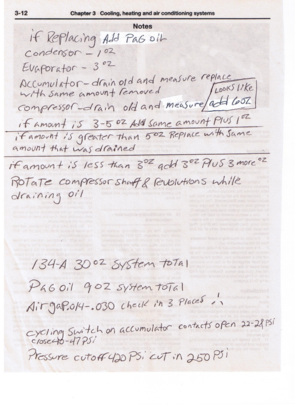 3-12
Chapter 3 Cooling, heating and air conditioning systems
Notes
if Replacing Add PAG oil
Condensor - 1 oz
Evaporator - 3 oz
Accumulator - drain old and measure replace
with same amount removed
compressor - drain old and measure add 6oz
Looks like
if amount is 3-5 oz Add same amount Plus 1 oz
if amount is greater than 5 oz Replace with same
amount that was drained
if amount is less than 3 oz add 3 oz Plus 3 more oz
Rotate compressor shaft 8 Revolutions while
draining oil
134-A 30 oz System total
PAG oil 9 oz system total
Air gap .014-.030 check in 3 Places
cycling switch on accumulator contacts open 22-28 psi
close 40-47 psi
Pressure cutoff 420 PSi cut in 250 PSi